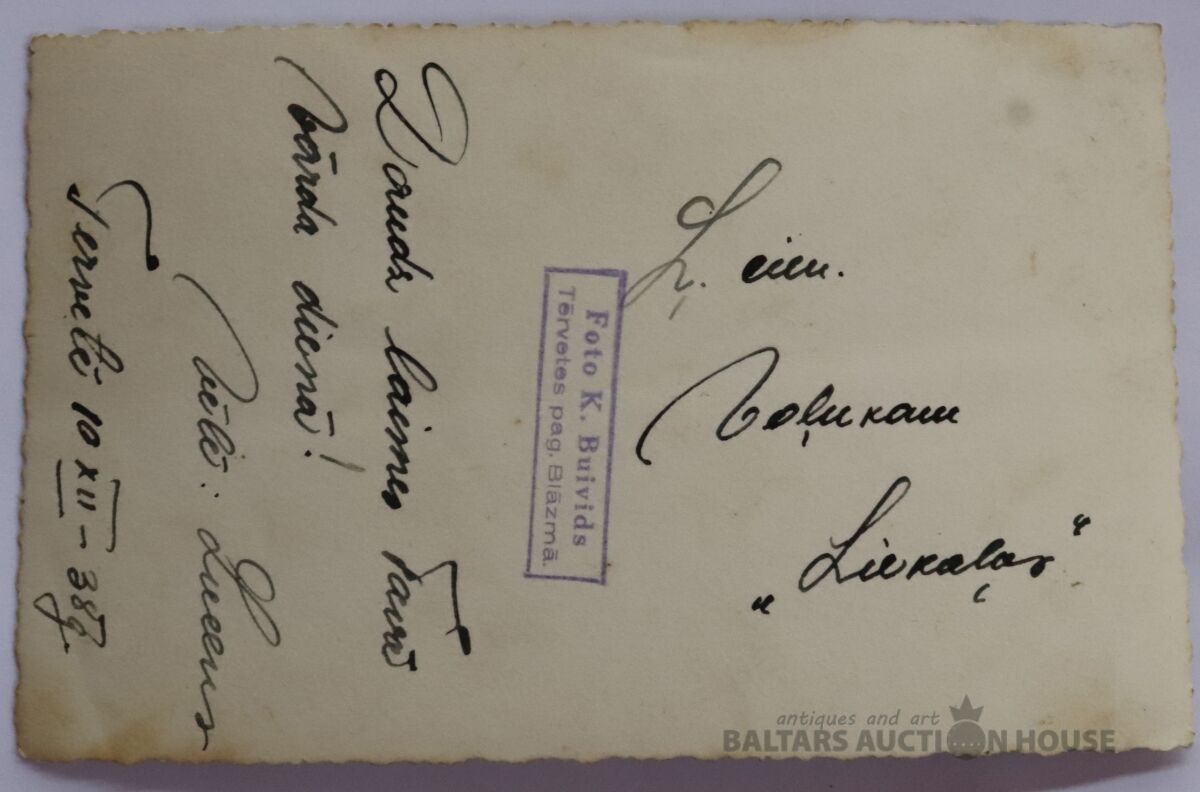 Daudz laimes Tavā
vārda dienā!
Vēlē:
Tērvetē 10 XII – 38g.
Foto K. Buivids
Tērvetes pag. Blāzmā.
Ļ. cien.
"Liekaļas"
antiques and art
BALTARS AUCTION HOUSE